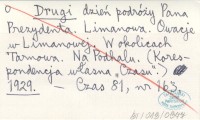 Drugi dzień podróży Pana
Prezydenta. Limanowa. Owacje
w Limanowej. W okolicach
Tarnowa. Na futbalu. (Kores-
pondencja własna „Czasu".)
1929. — Czas 81, nr 163.
III/019/0944